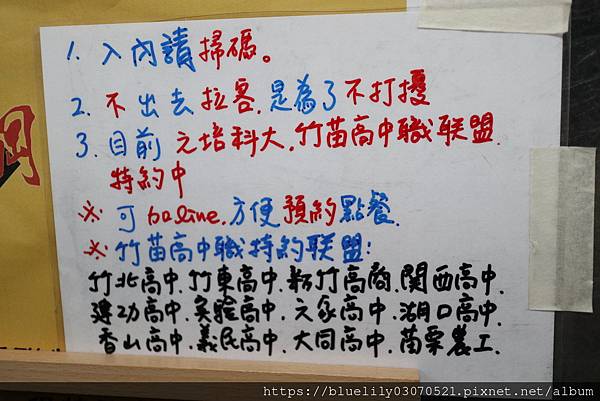 1. 入內請掃碼。
2. 不出去拉客,是為了不打擾
3. 目前 元培科大,竹苗高中職联盟.
特約中
※ 可 line, 方便預約點餐.
※ 竹苗高中職特約联盟:
竹北高中.竹東高中.新竹高商.関西高中.
建功高中.吳濁高中.六家高中.湖口高中.
香山高中.義民高中.大同高中.苗栗農工.
https://bluelily03070521.pixnet.net/album